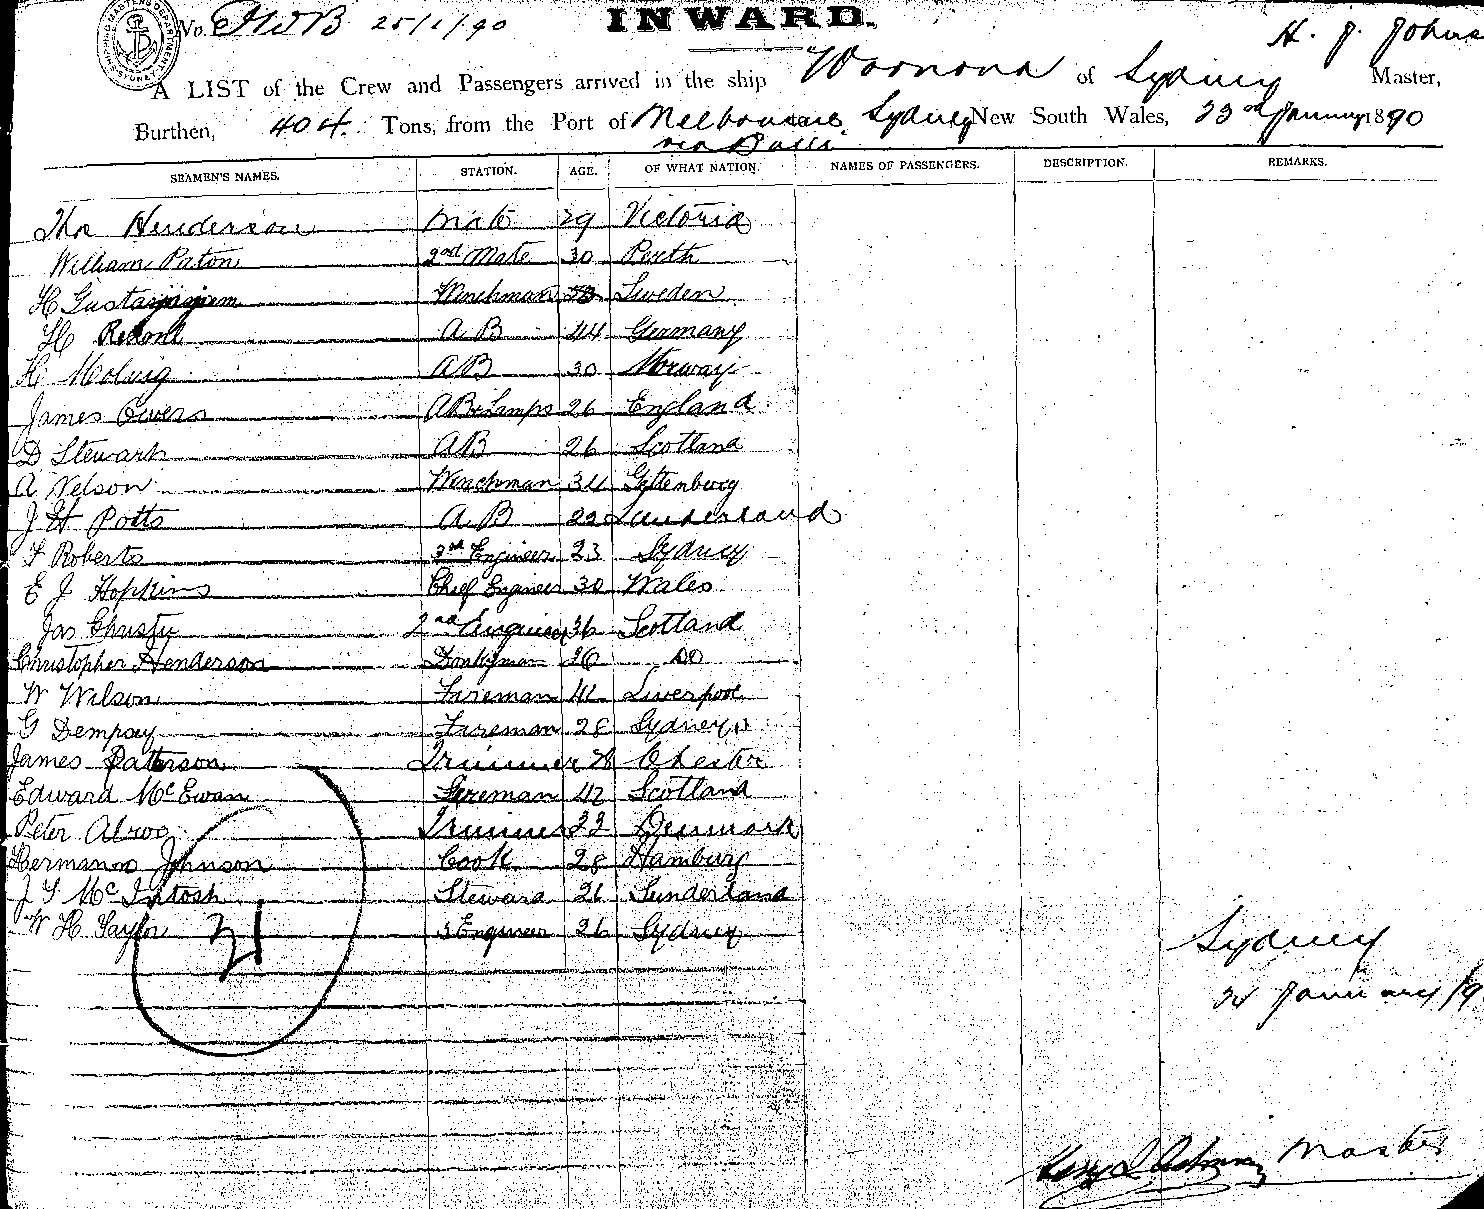 No. JWB 25/1/90 INWARD. H. J. Johns
SHIPPING MASTERS DEPARTMENT SYDNEY
A LIST of the Crew and Passengers arrived in the ship Woonona of Sydney Master,
Burthen, 404 Tons, from the Port of Melbourne Sydney New South Wales, 23rd January 1890
via Bulli
SEAMEN'S NAMES. STATION. AGE. OF WHAT NATION. NAMES OF PASSENGERS. DESCRIPTION. REMARKS.
Thos Henderson Mate 29 Victoria
William Paton 2nd Mate 30 Perth
H Winchman Sweden
H A B 44 Germany
H Molvig A B 30 Norway
James Owers AB & Lamps 26 England
D Stewart AB 26 Scotland
A Nelson Winchman 34 Gottenburg
J H Potts A B 22 Sunderland
F Roberts 3rd Engineer 23 Sydney
E J Hopkins Chief Engineer 30 Wales
Jas Christy 2nd Engineer 36 Scotland
Christopher Henderson Donkyman 26 DO
W Wilson Fireman 41 Liverpool
G Dempsey Fireman 28 Sydney
James Patterson Trimmer Chester
Edward McEwan Fireman 42 Scotland
Peter Trimmer 22 Denmark
Hermann Johnson Cook 28 Hamburg
J F McIntosh Steward 21 Sunderland
W H Taylor 3 Engineer 26 Sydney
21
Sydney
24 January /9
Master